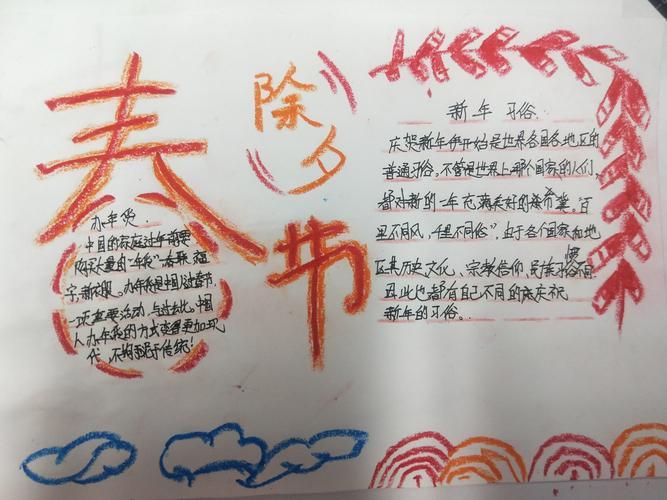 春
节
除夕
办年货
中国的家庭过年前要
购买大量的“年货”春联、福
字、新衣服，办年货是中国人过春节
一项重要活动，与过去比，中国
人办年货的方式变得更加现
代，不拘泥于传统！
新年习俗
庆贺新年伊开始是世界各国各地区的
普通习俗，不管是世界上那个国家的人们，
都对新的一年充满美好的希冀。“百
里不同风，千里不同俗”，由于各个国家和地
区其历史文化、宗教信仰、民族习惯不同
因此也都有自己不同的庆祝
新年的习俗。